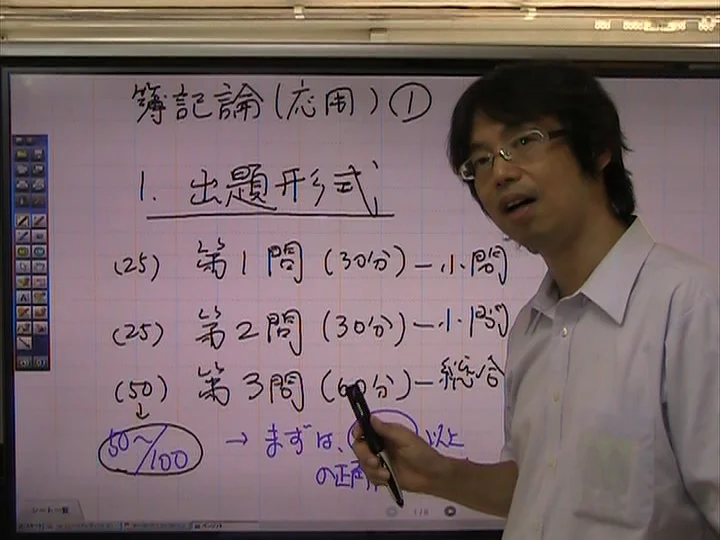 簿記論(応用)①
1. 出題形式
(25) 第1問(30分)―小問
(25) 第2問(30分)―小問
(50) 第3問(60分)―総合
↓
50~/100 → まずは、 以上
の正
シート一覧
1/8